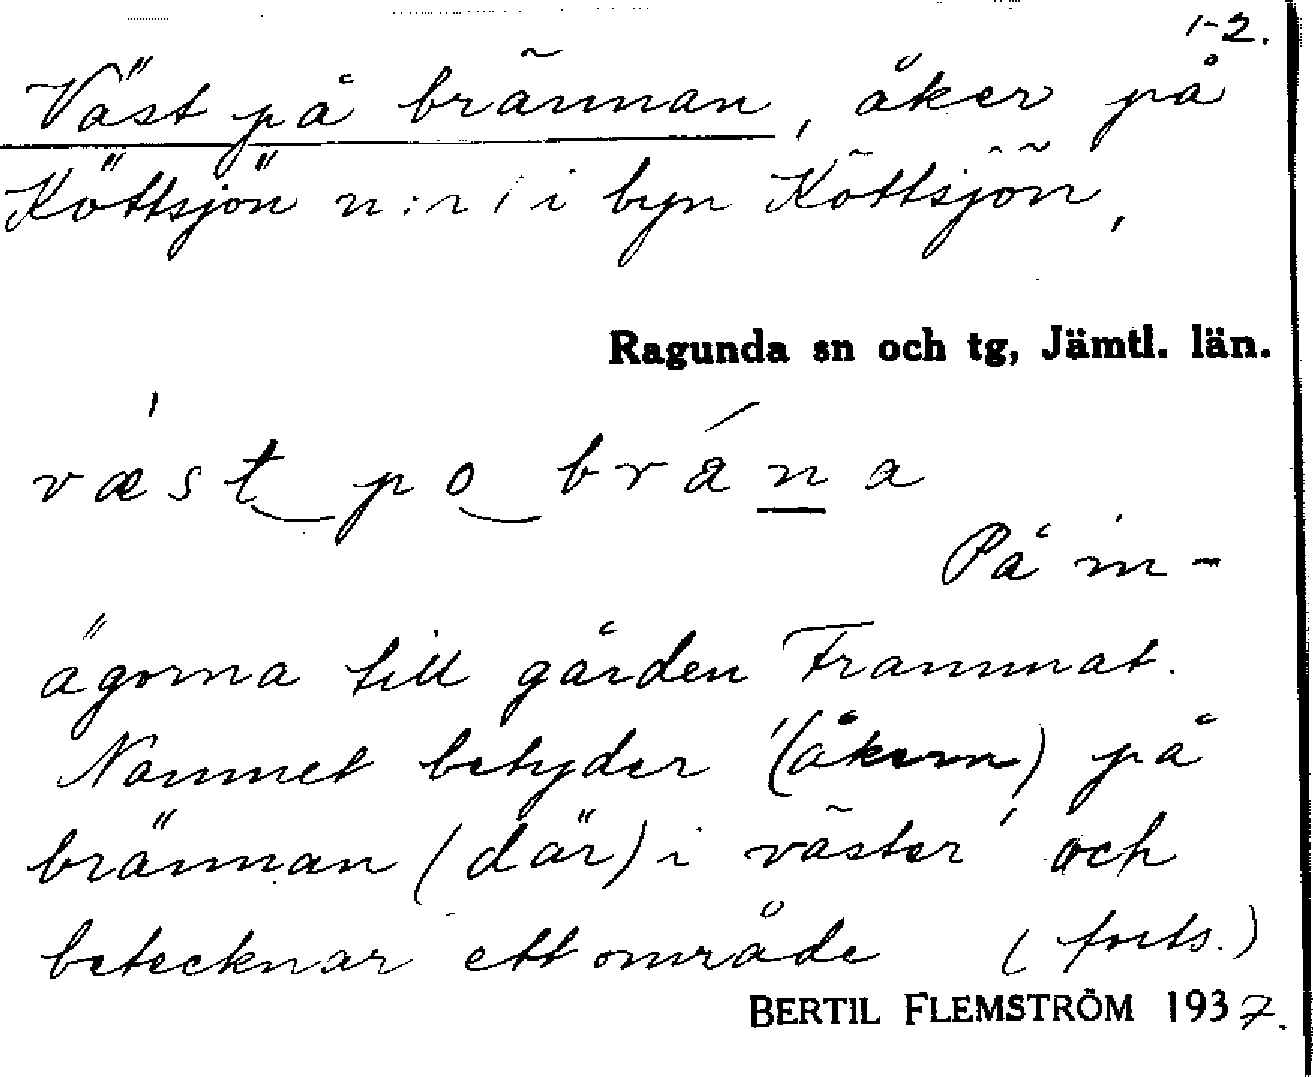 1-2.
Väst på brännan, åker på
Köttsjön n:r 1 i byn Köttsjön,
Ragunda sn och tg, Jämtl. län.
væst po brána
På in-
ägorna till gården Frammat.
Namnet betyder '(åkern) på
brännan (där) i väster' och
betecknar ett område (forts.)
BERTIL FLEMSTRÖM 1937.